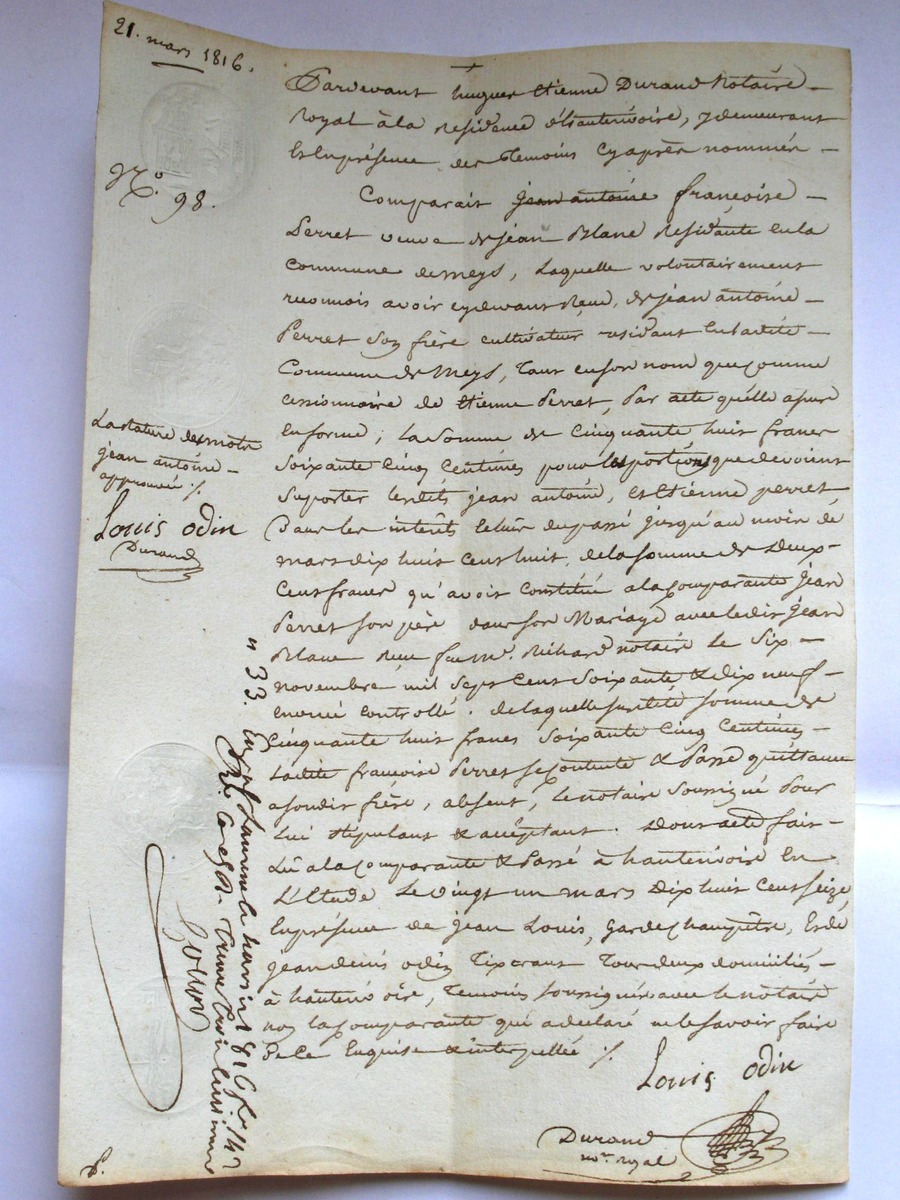 21. mars 1816.
N.o 98.
Pardevant hugues Etienne Durand Notaire
Royal à la Residence d'hauterivoire, y demeurant
Et en présence des Temoins Cy après nommés
Comparait jean antoine françoise
Perret veuve de jean Blanc Residante en la
Commune de Meys, Laquelle volontairement
reconnois avoir cydevant Reçu, de jean antoine
Perret Son frère cultivateur residant en ladite
Commune de Meys, Tant en son nom que comme
cessionnaire de Etienne Perret, Par acte qu'elle a
en forme, La Somme de Cinquante huit francs
Soixante Cinq Centimes pour les portions que devoient
Suporter lesdits jean antoine, et Etienne perret,
Dans les intérêts du passé jusqu'au mois de
mars dix huit cent huit, de la somme de Deux
Cent francs qu'avoit Constitué a la Comparante jean
Perret Son père dans son Mariage avec ledit jean
Blanc Reçu Richard notaire Le Six
novembre mil Sept Cent Soixante & dix neuf
controllé. de laquelle susdite somme de
Cinquante huit francs Soixante Cinq Centimes
Ladite françoise Perret se Contente & Passe quittance
a sondit frère, absent, Le notaire Soussigné Pour
Lui Stipulant & acceptant. Dont acte fait
Lu a la Comparante & Passé à hauterivoire En
L'Etude Le vingt un mars Dix huit Cent Seize,
En présence de jean Louis, garde Champêtre, Et de
jean denis odin Tixerant Tous deux domiciliés
à hauterivoire, Temoins Soussignés avec le notaire
non la Comparante qui a declaré ne le Savoir faire
De ce Enquise & interpellée ./.
Louis odin
Durand
not.re royal
La rature des mots
jean antoine
approuvée ./.
Louis odin
Durand
n 33.
mars 1816